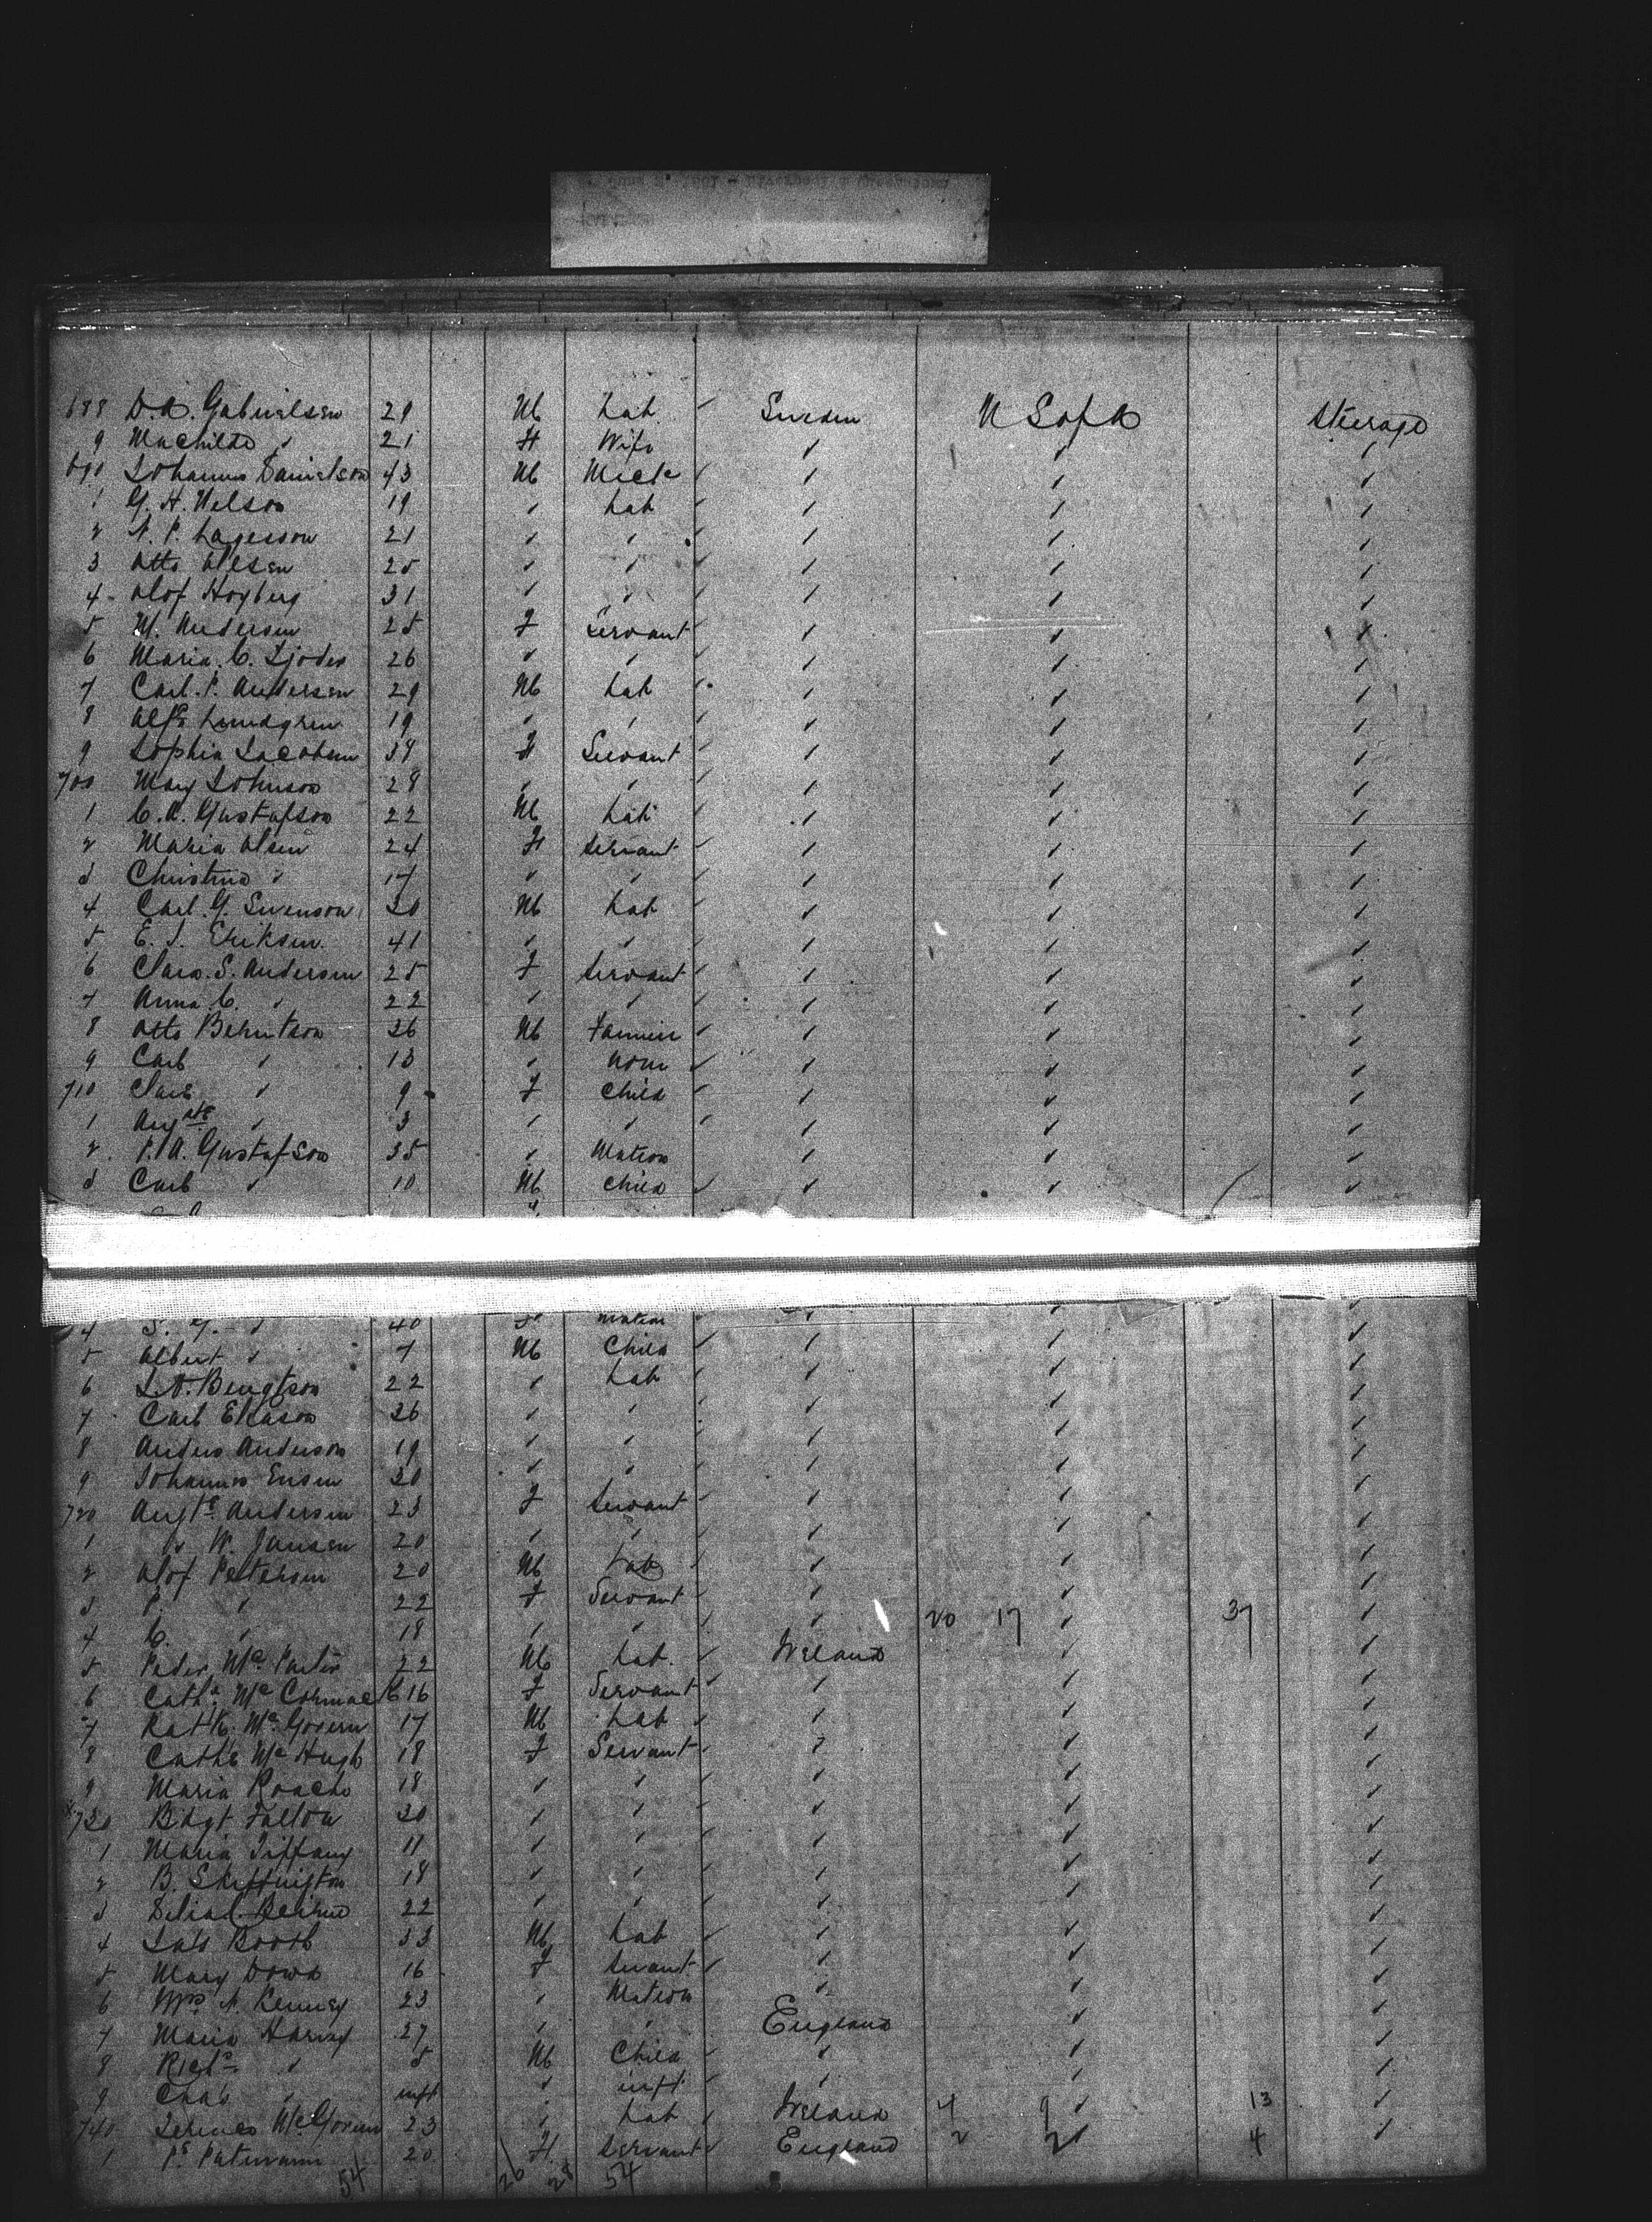 688 D. A. Gabrielsen 29 M Lab Sweden U S of A Steerage
9 Machilda " 21 F Wife " " "
690 Johannes Danielson 43 M Mech " " "
1 G. H. Nelson 19 " Lab " " "
2 N. P. Lagesson 21 " " " " "
3 Otto Olsen 25 " " " " "
4 Olof Hogberg 31 " " " " "
5 M. Andersen 25 F Servant " " "
6 Maria C. 26 " " " " "
7 Carl P. Andersen 29 M Lab " " "
8 Alfd Lundgren 19 " " " " "
9 Sophia Jacobsen 34 F Servant " " "
700 Mary Johnson 28 " " " " "
1 C. A. Gustafson 22 M Lab " " "
2 Maria Olsen 24 F Servant " " "
3 Christina " 17 " " " " "
4 Carl G. Svenson 30 M Lab " " "
5 E. J. Eriksen 41 " " " " "
6 Clara S. Andersen 25 F Servant " " "
7 Anna C. " 22 " " " " "
8 Otto Berntson 36 M Farmer " " "
9 Carl " 13 " None " " "
710 Clara " 9 F Child " " "
1 Augte " 3 " " " " "
2 P. A. Gustafson 35 " Matron " " "
3 Carl " 10 M Child " " "
4 S. G. " 40 F Matron " " "
5 Albert " 7 M Child " " "
6 J. A. Bengtson 22 " Lab " " "
7 Carl Eliason 26 " " " " "
8 Anders Anderson 19 " " " " "
9 Johannes 20 " " " " "
720 Augte Andersen 23 F Servant " " "
1 " W. Jansen 20 " " " " "
2 Olof Petersen 20 M Lab " " "
3 P. " 22 F Servant " " "
4 C. " 18 " " " 20 17 " 37 "
5 Peter Mc 22 M Lab. Ireland " "
6 Cathe McCormack 16 F Servant " " "
7 McGovern 17 M Lab " " "
8 Cathe McHugh 18 F Servant " " "
9 Maria Roache 18 " " " " "
730 Bdgt Fallon 20 " " " " "
1 Maria Tiffany 11 " " " " "
2 B. Skeffington 18 " " " " "
3 Delia Beirne 22 " " " " "
4 Jas Booth 33 M Lab " " "
5 Mary Dowd 16 F Servant " " "
6 Mrs N. Kenney 23 " Matron " " "
7 Maria Harvey 27 " " England " "
8 Richd " 5 M Child " " "
9 Chas " inft " inft " " "
740 McGovern 23 " Lab Ireland 4 9 " 13 "
1 20 F Servant England 2 2 " 4 "
54 26 28 54